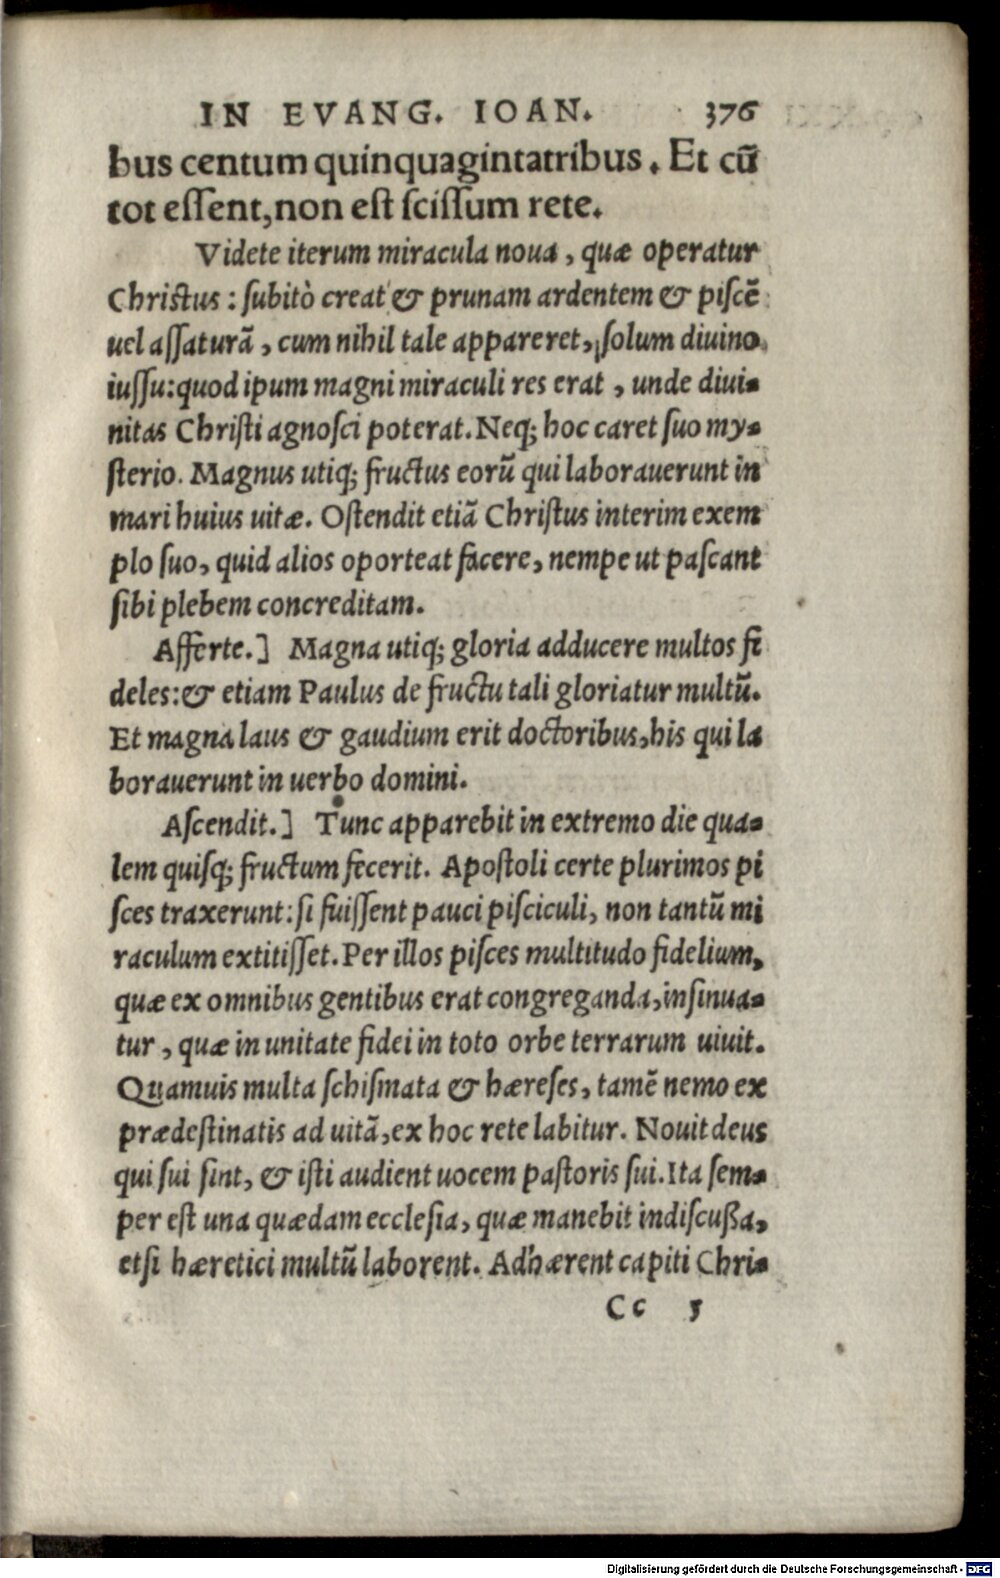 IN EVANG. IOAN. 376
bus centum quinquagintatribus. Et cū
tot eſſent, non eſt ſciſſum rete.
Videte iterum miracula noua, quæ operatur
Chriſtus: ſubitò creat & prunam ardentem & piſcē
uel aſſaturā, cum nihil tale appareret, ſolum diuino
iuſſu: quod ipum magni miraculi res erat, unde diui-
nitas Chriſti agnoſci poterat. Neq; hoc caret ſuo my-
ſterio. Magnus utiq; fructus eorū qui laborauerunt in
mari huius uitæ. Oſtendit etiā Chriſtus interim exem
plo ſuo, quid alios oporteat facere, nempe ut paſcant
ſibi plebem concreditam.
Afferte.] Magna utiq; gloria adducere multos fi
deles: & etiam Paulus de fructu tali gloriatur multū.
Et magna laus & gaudium erit doctoribus, his qui la
borauerunt in uerbo domini.
Aſcendit.] Tunc apparebit in extremo die qua-
lem quiſq; fructum fecerit. Apoſtoli certe plurimos pi
ſces traxerunt: ſi fuiſſent pauci piſciculi, non tantū mi
raculum extitiſſet. Per illos piſces multitudo fidelium,
quæ ex omnibus gentibus erat congreganda, inſinua-
tur, quæ in unitate fidei in toto orbe terrarum uiuit.
Quamuis multa ſchiſmata & hæreſes, tamē nemo ex
prædeſtinatis ad uitā, ex hoc rete labitur. Nouit deus
qui ſui ſint, & iſti audient uocem paſtoris ſui. Ita ſem-
per eſt una quædam eccleſia, quæ manebit indiſcußa,
etſi hæretici multū laborent. Adhærent capiti Chri-
Cc 5
Digitalisierung gefördert durch die Deutsche Forschungsgemeinschaft - DFG